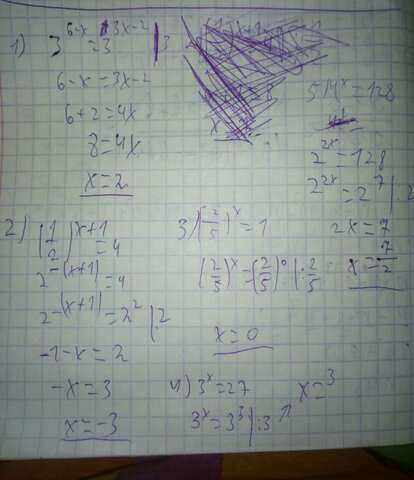 1) 3^{6-x} = 3^{3x-2} | 3
6-x = 3x-2
6+2 = 4x
8 = 4x
x = 2
2) (1/2)^{x+1} = 4
2^{-(x+1)} = 4
2^{-(x+1)} = 2^2 |:2
-1-x = 2
-x = 3
x = -3
3) (2/5)^x = 1
(2/5)^x = (2/5)^0 |:2/5
x = 0
4) 3^x = 27
3^x = 3^3 |:3 ↗
x = 3
5) 4^x = 128
2^{2x} = 128
2^{2x} = 2^7 |:2
2x = 7
x = 7/2